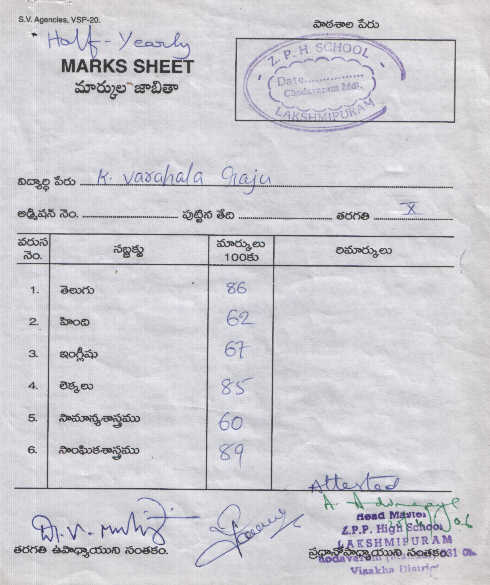 S.V. Agencies, VSP-20.
పాఠశాల పేరు
Half-Yearly
MARKS SHEET
మార్కుల జాబితా
Z. P. H SCHOOL
Date................
Chodavaram Mdl.
LAKSHMIPURAM
విద్యార్థి పేరు K. Varahala Raju
అడ్మిషన్ నెం. పుట్టిన తేది తరగతి X
వరుస నెం. సబ్జక్టు మార్కులు 100కు రిమార్కులు
1. తెలుగు 86
2. హింది 62
3. ఇంగ్లీషు 67
4. లెక్కలు 85
5. సామాన్యశాస్త్రము 60
6. సాంఘికశాస్త్రము 89
Attested
Head Master
Z.P.P. High School
LAKSHMIPURAM
తరగతి ఉపాధ్యాయుని సంతకం. ప్రధానోపాధ్యాయుని సంతకం
Visakha District